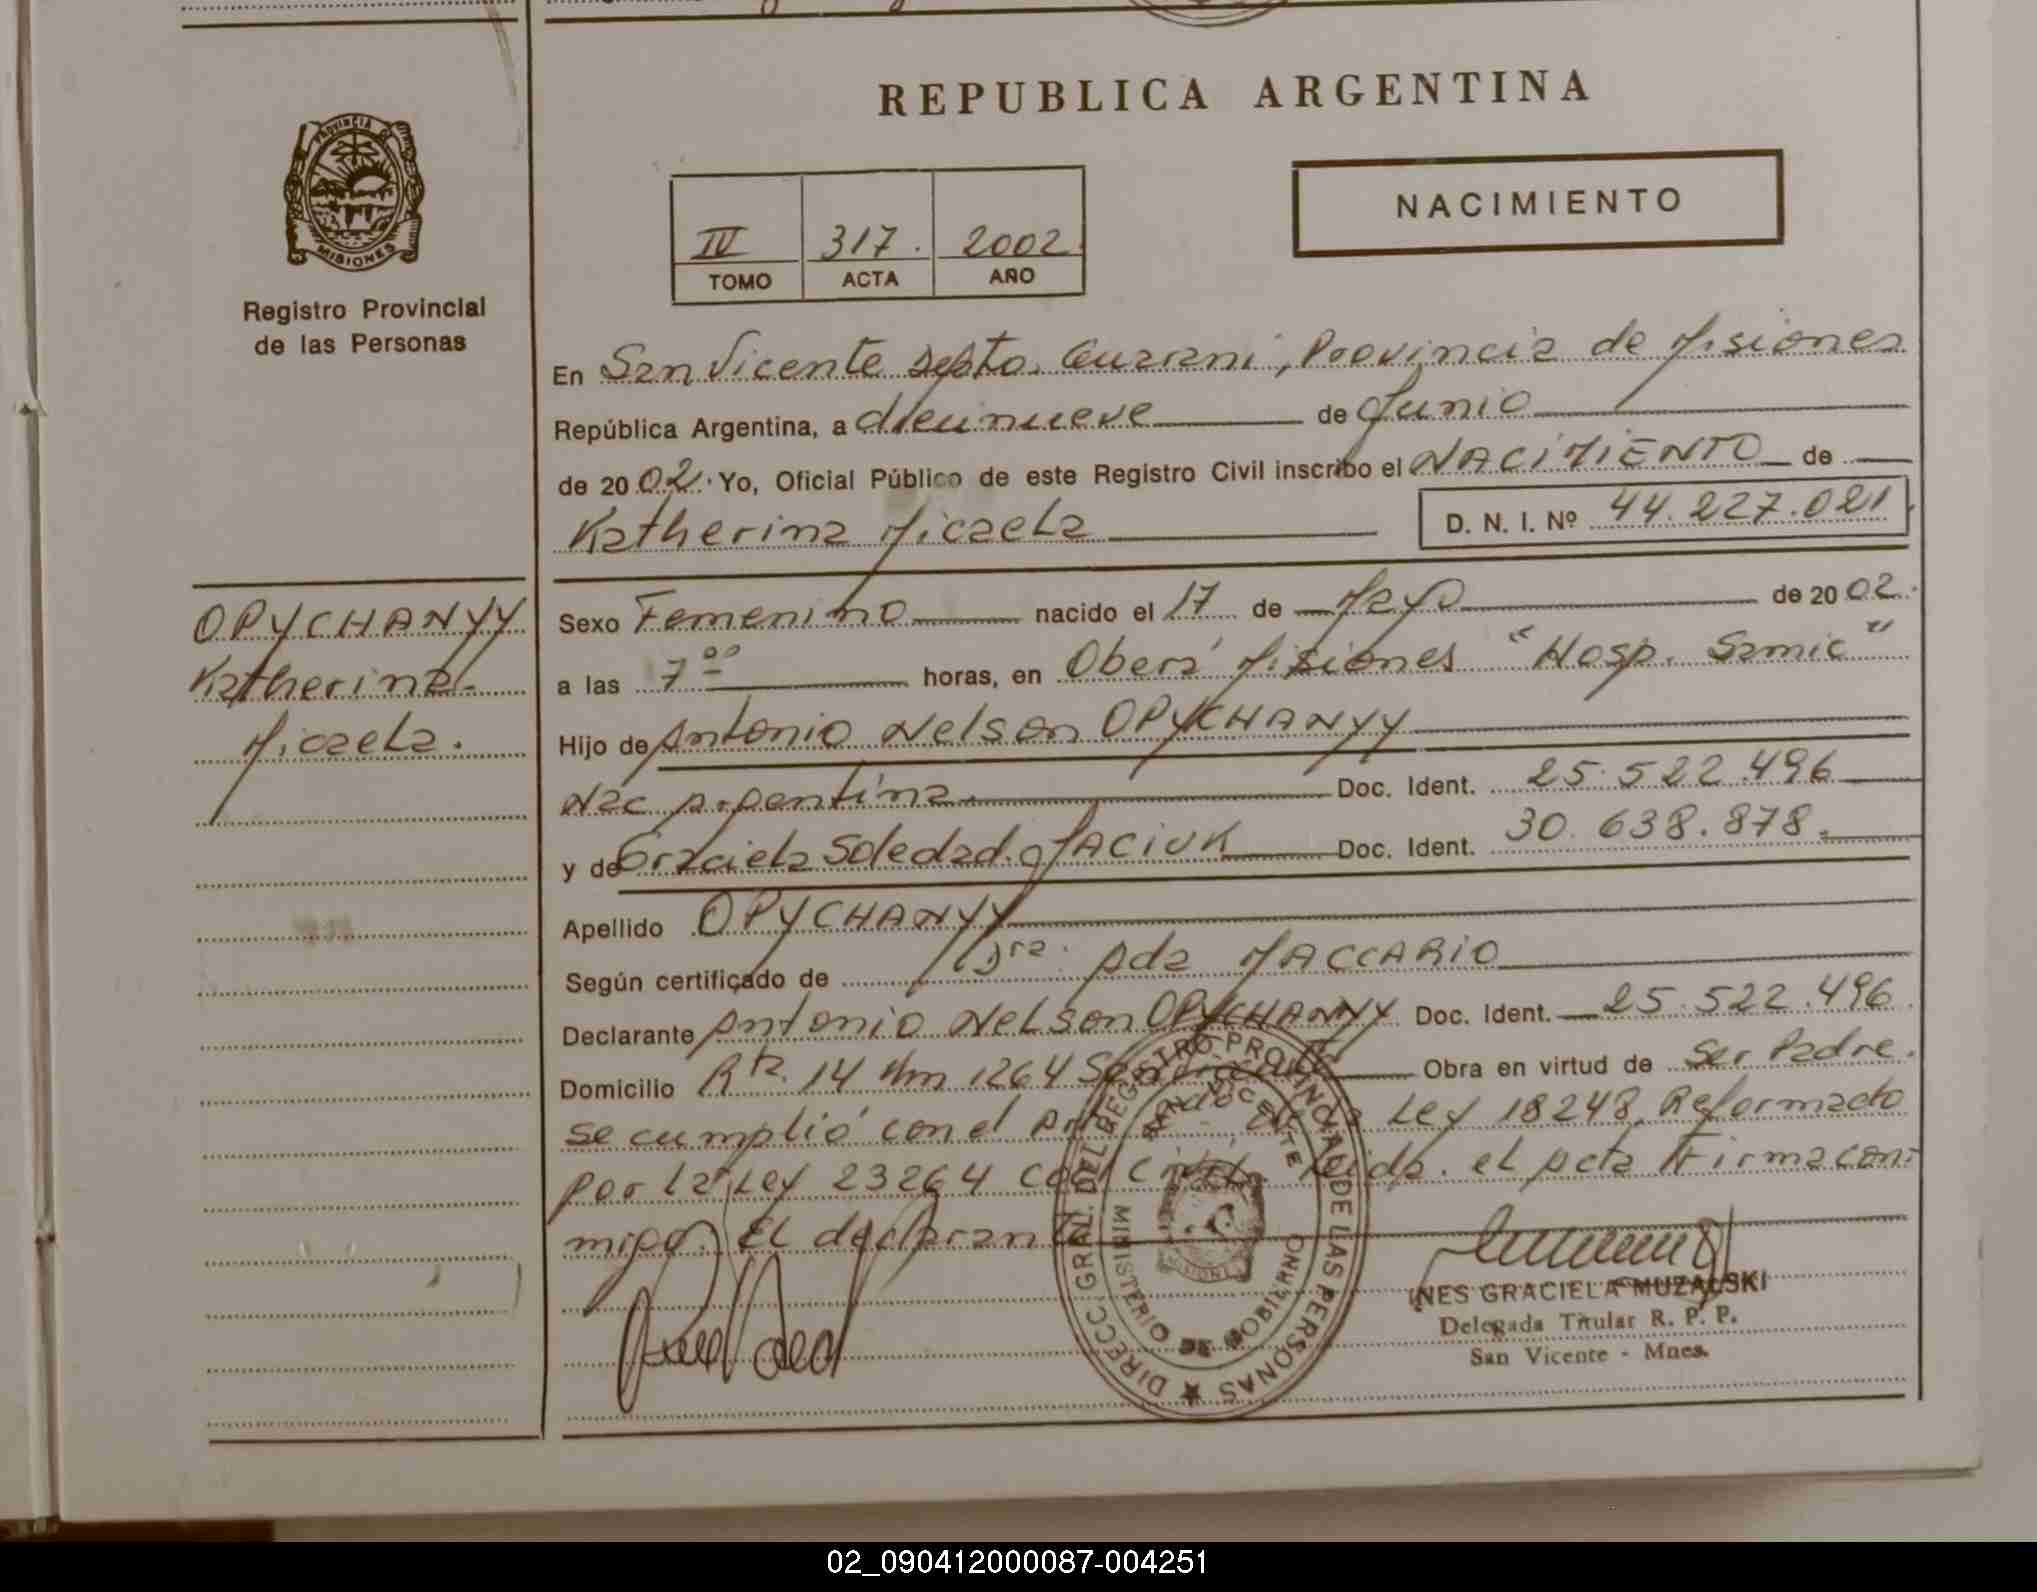 PROVINCIA DE
MISIONES
Registro Provincial
de las Personas
REPUBLICA ARGENTINA
IV 317. 2002
TOMO ACTA AÑO
NACIMIENTO
En San Vicente Depto. Guarani, Provincia de Misiones
República Argentina, a diecinueve de Junio
de 2002. Yo, Oficial Público de este Registro Civil inscribo el NACIMIENTO de
Katherina Micaela D. N. I. Nº 44.227.021
OPYCHANYY
Katherina
Micaela.
Sexo Femenino nacido el 17 de Mayo de 2002.
a las 7 00 horas, en Oberá Misiones "Hosp. Samic"
Hijo de Antonio Nelson OPYCHANYY
Nac Argentina. Doc. Ident. 25.522.496
y de Graciela Soledad MACIUK Doc. Ident. 30.638.878.
Apellido OPYCHANYY
Según certificado de Dra. Ada MACCARIO
Declarante Antonio Nelson OPYCHANYY Doc. Ident. 25.522.496.
Domicilio Rta. 14 Km 1264 San Vicente Obra en virtud de Ser Padre.
se cumplió con el Ley 18248, Reformado
por la Ley 23264 Leida el Acta Firma con-
migo. El declarante
DIRECC. GRAL. DEL REGISTRO PROVINCIAL DE LAS PERSONAS
SAN VICENTE
MISIONES
MINISTERIO DE GOBIERNO
INES GRACIELA MUZALSKI
Delegada Titular R. P. P.
San Vicente - Mnes.
02_090412000087-004251